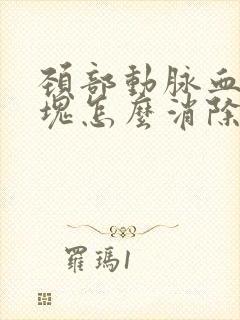 頚部動脉血
塊怎麼消除
羅瑪1